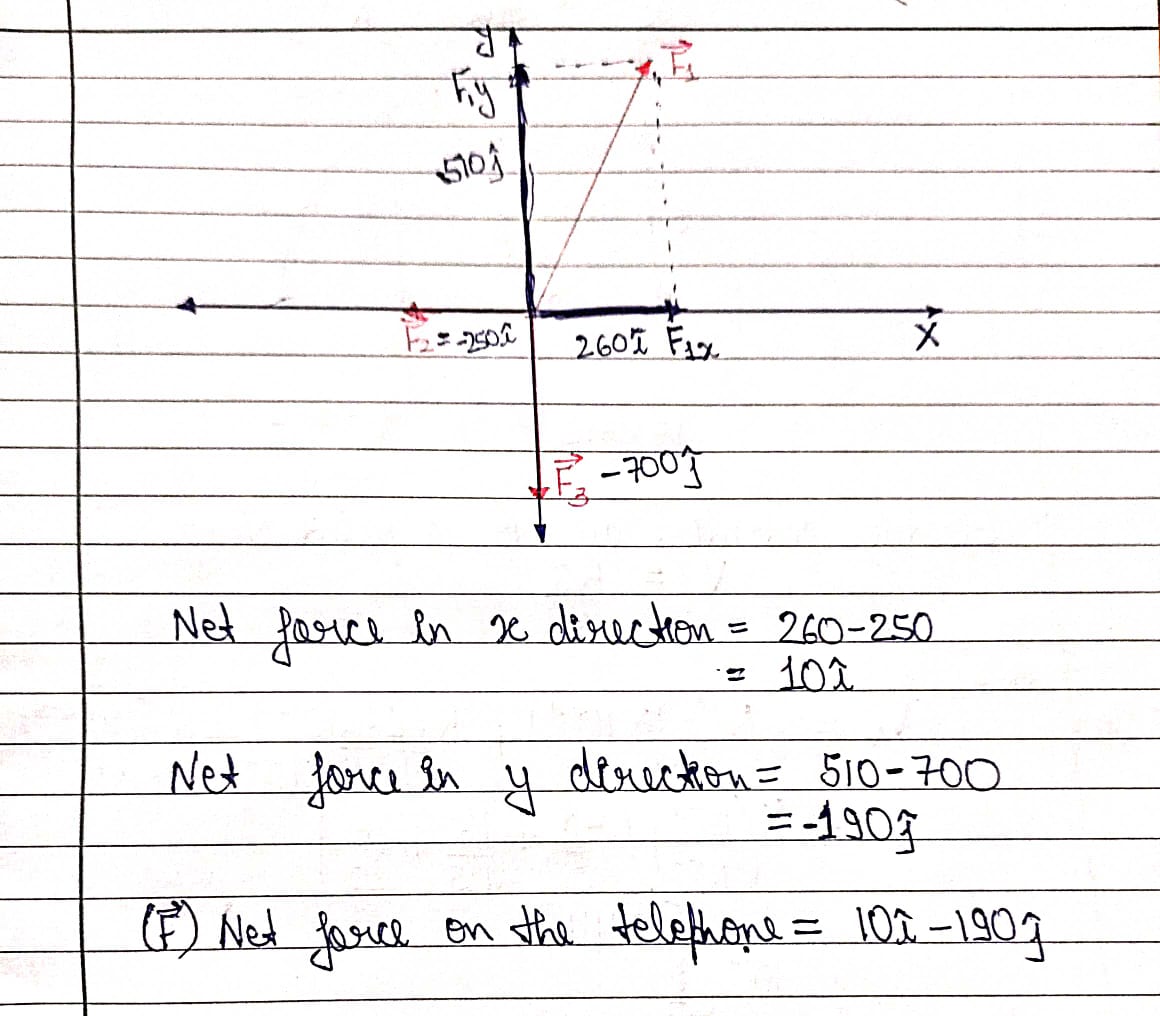 y
F₁
F₁y
510ĵ
F₂ = -250î
260î F₁x
X
F₃ -700ĵ
Net force in x direction = 260-250
= 10î
Net force in y direction = 510-700
= -190ĵ
(F⃗) Net force on the telephone = 10î -190ĵ